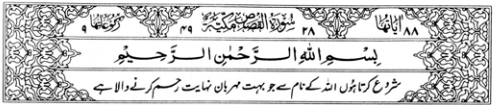 اٰیاتھا ۸۸ ۲۸ سُوْرَةُ الْقَصَصِ مَكِّيَّةٌ ۴۹ رکوعاتھا ۹
بِسْمِ اللهِ الرَّحْمٰنِ الرَّحِيْمِ
شروع کرتا ہوں اللہ کے نام سے جو بہت مہربان نہایت رحم کرنے والا ہے